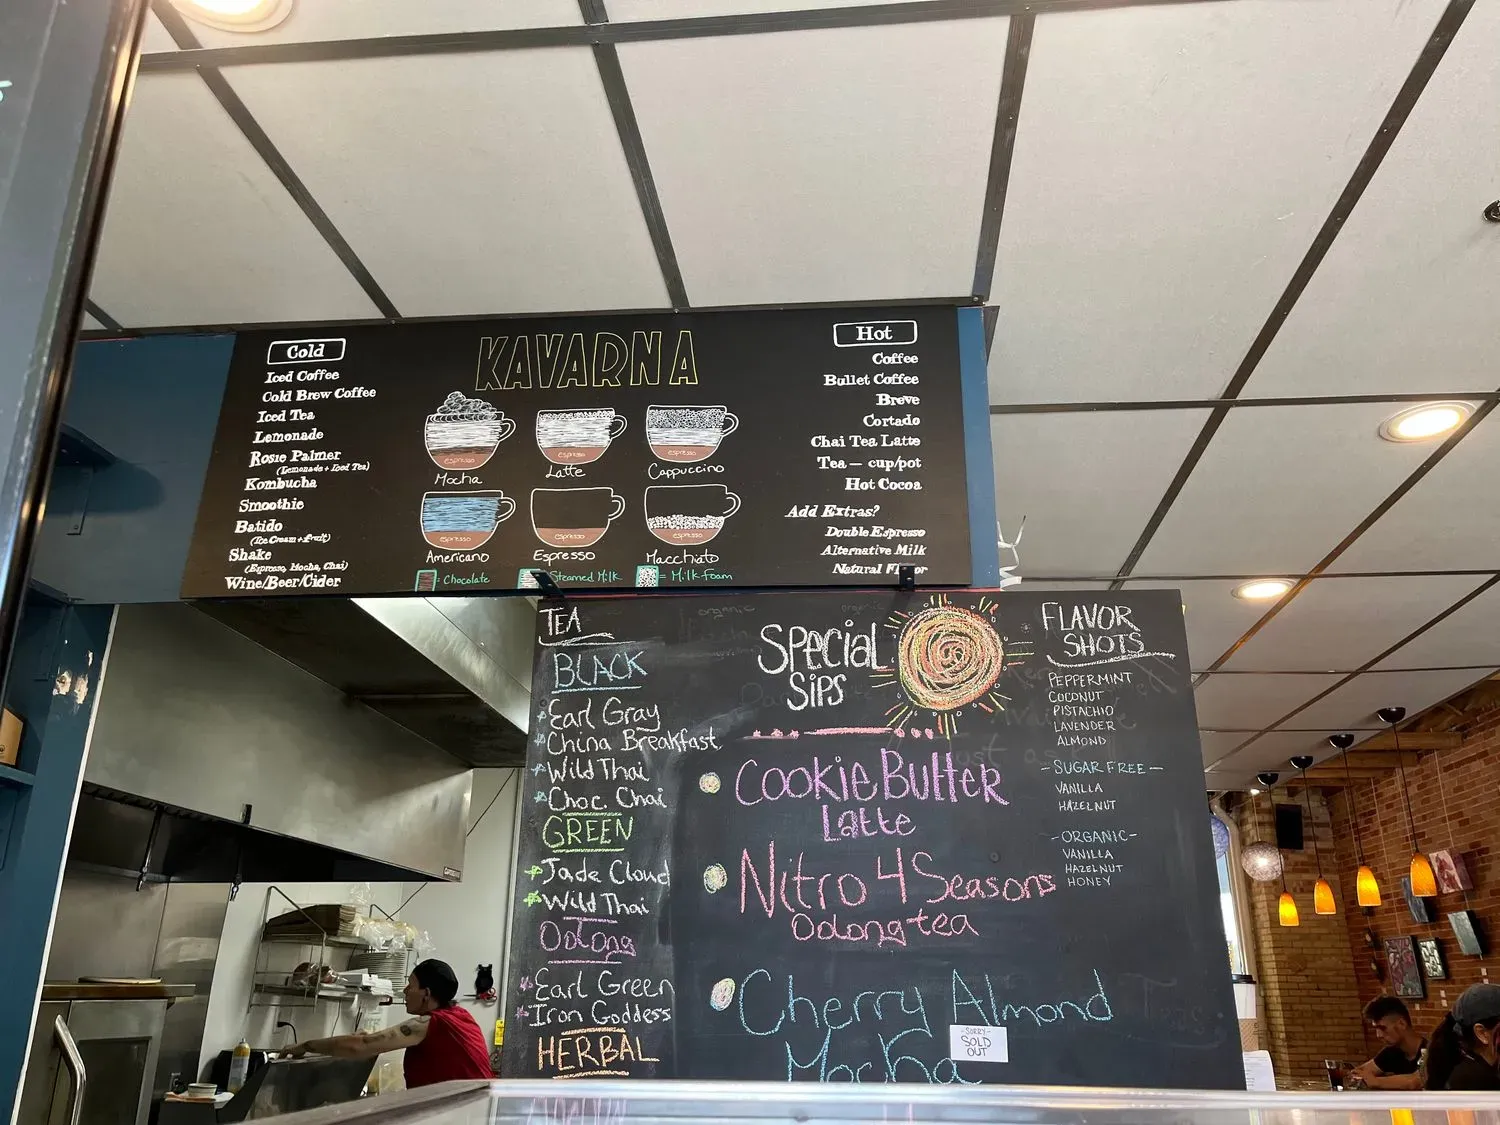 KAVARNA
Cold
Iced Coffee
Cold Brew Coffee
Iced Tea
Lemonade
Rosie Palmer
(Lemonade + Iced Tea)
Kombucha
Smoothie
Batido
(Ice Cream + fruit)
Shake
(Espresso, Mocha, Chai)
Wine/Beer/Cider
espresso
Mocha
espresso
Latte
espresso
Cappuccino
espresso
Americano
espresso
Espresso
Macchiato
= Chocolate
Steamed Milk
= Milk Foam
Hot
Coffee
Bullet Coffee
Breve
Cortado
Chai Tea Latte
Tea — cup/pot
Hot Cocoa
Add Extras?
Double Espresso
Alternative Milk
Natural Fl vor
TEA
BLACK
Earl Gray
China Breakfast
Wild Thai
Choc. Chai
GREEN
Jade Cloud
Wild Thai
Oolong
Earl Green
Iron Goddess
HERBAL
Special
Sips
Cookie Butter
Latte
Nitro 4 Seasons
Oolong tea
Cherry Almond
Mocha
-SORRY-
SOLD
OUT
FLAVOR
SHOTS
PEPPERMINT
COCONUT
PISTACHIO
LAVENDER
ALMOND
-SUGAR FREE-
VANILLA
HAZELNUT
-ORGANIC-
VANILLA
HAZELNUT
HONEY
organic